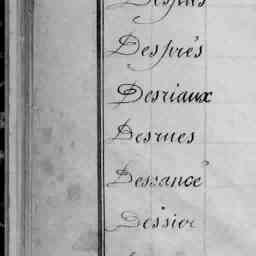 Després
Desriaux
Desrues
Dessance
Dessier